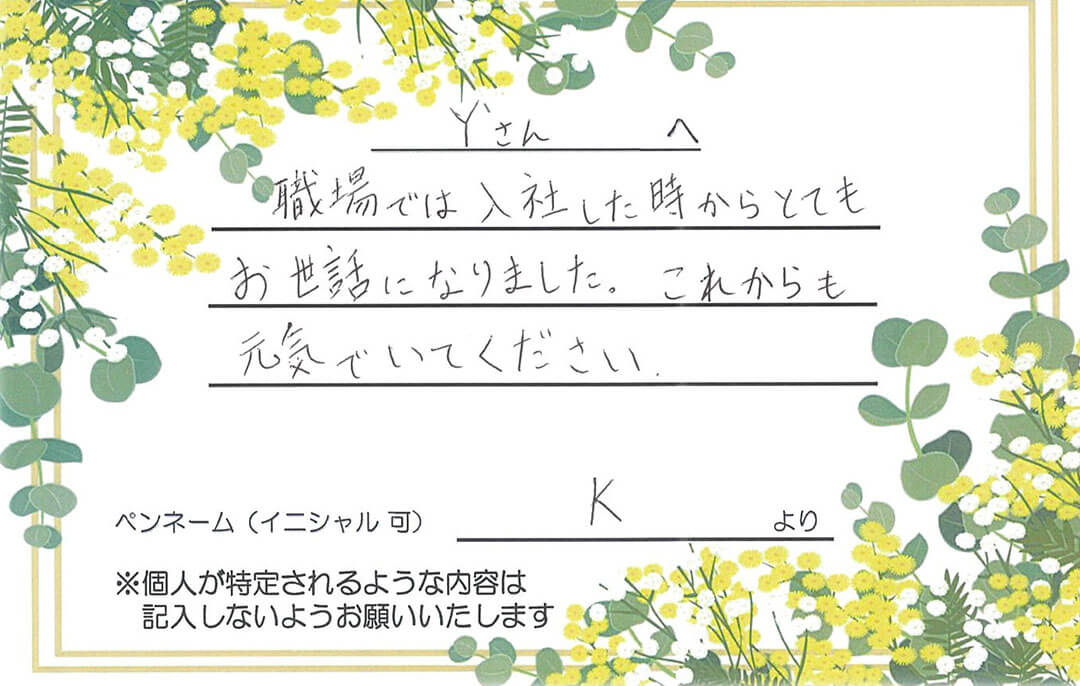 Yさん へ
職場では入社した時からとても
お世話になりました。これからも
元気でいてください.
ペンネーム（イニシャル 可） K より
※個人が特定されるような内容は
記入しないようお願いいたします